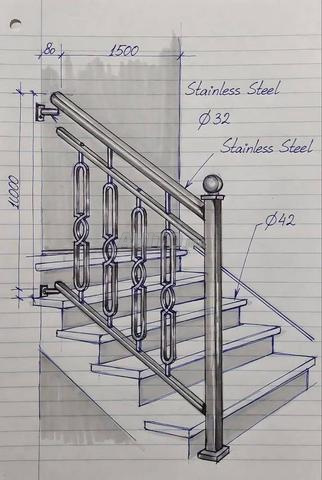 80 1500
Stainless Steel
Ø32
Stainless Steel
Ø42
10000